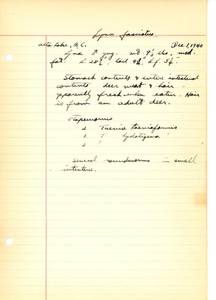 Lynx fasciatus
Alta Lake, B.C. Dec 1, 1944
fat. L 28½ tail 4¾
Stomach contents & entire intestinal
contents deer meat & hair -
apparently fresh when eaten. Hair
is from an adult deer.
Tapeworms
Taenia taeniaeformis
T. hydatigena
Several roundworms in small
intestine.